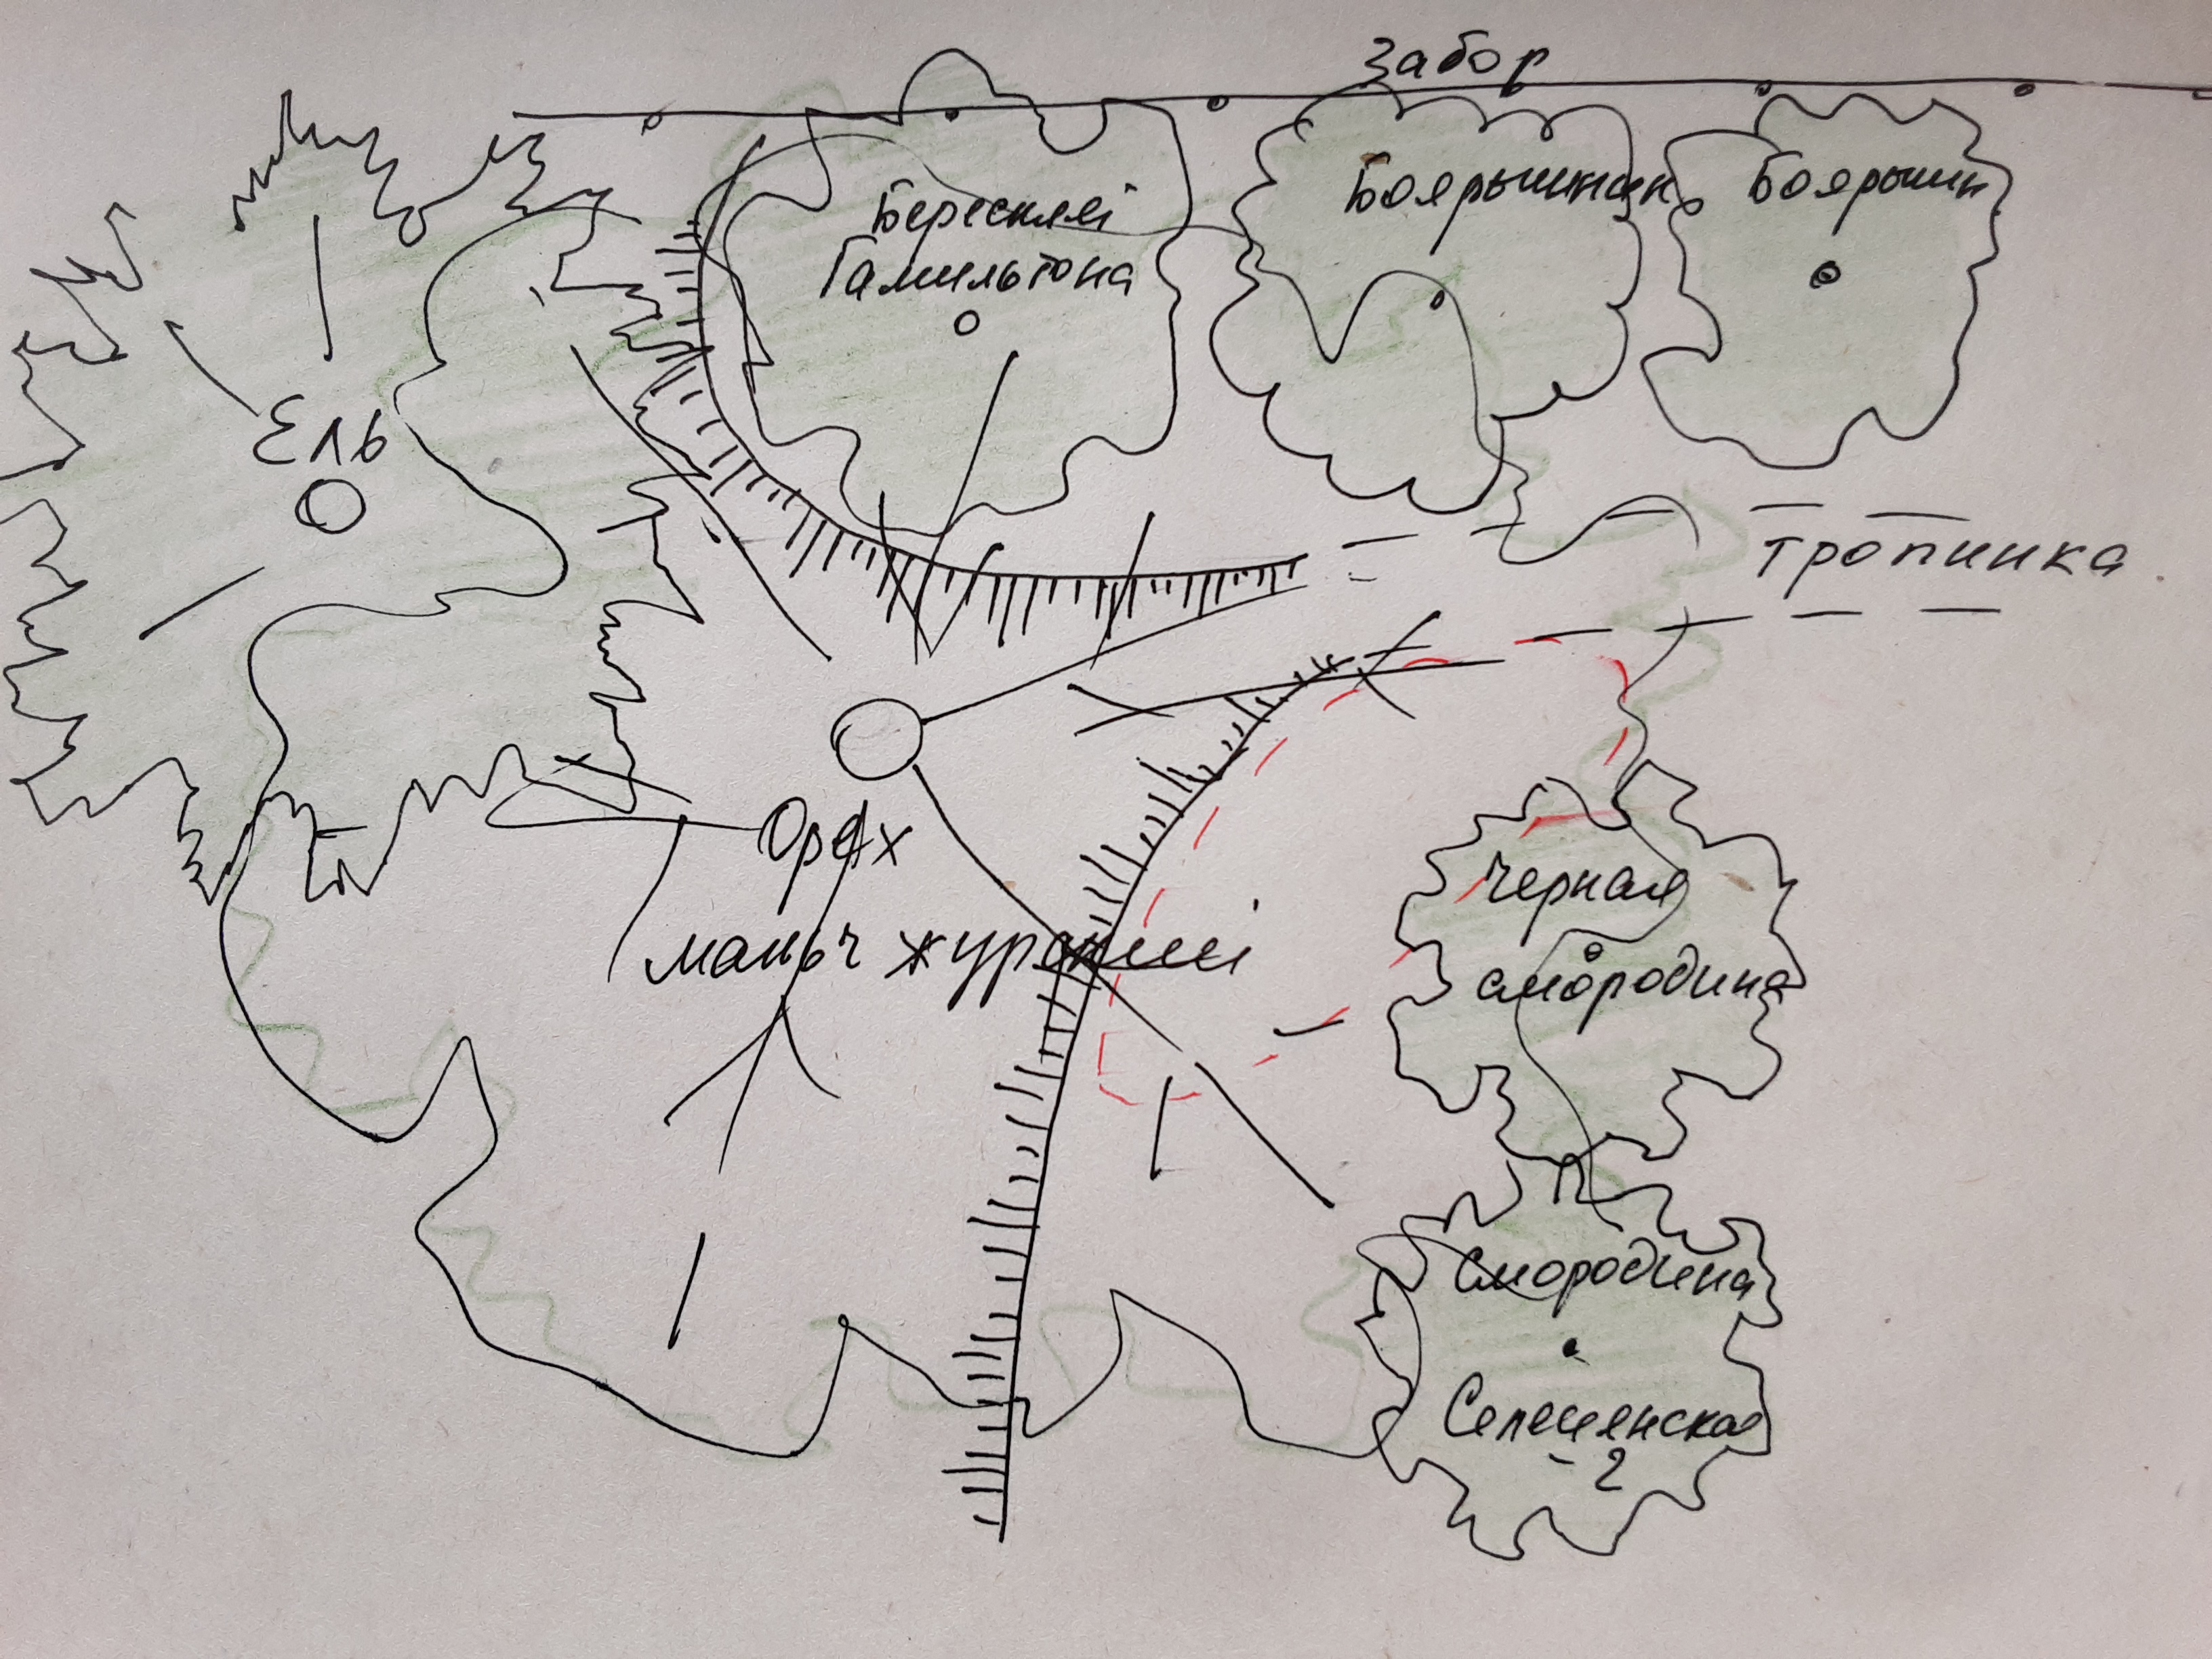 Забор
Бересклет
Гамильтона
Боярышник
Боярышн
Ель
Тропинка
Орех
маньчжурский
Черная
смородина
Смородина
Селеченская
- 2